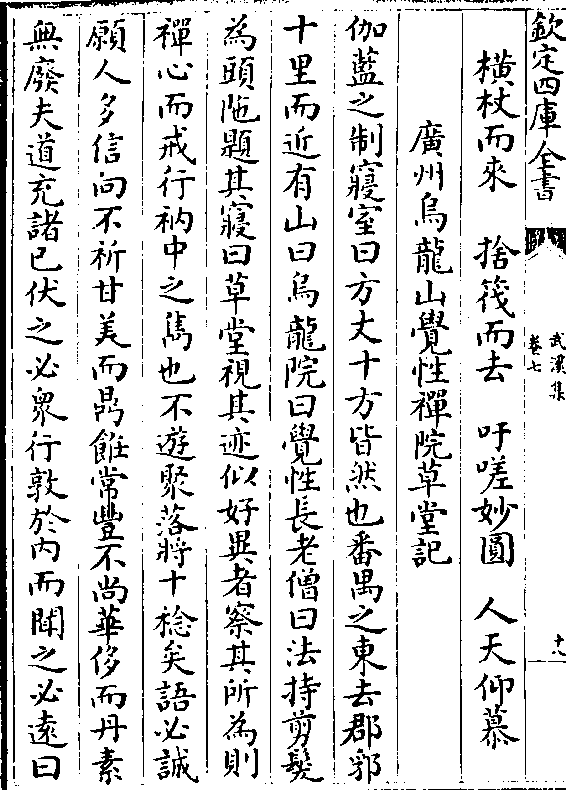 欽定四庫全書
武溪集
卷七
十八
橫杖而來　捨筏而去　吁嗟妙圓　人天仰慕
廣州烏龍山覺性禪院草堂記
伽藍之制寢室曰方丈十方皆然也番禺之東去郡郛
十里而近有山曰烏龍院曰覺性長老僧曰法持剪髮
為頭陁題其寢曰草堂視其迹似好異者察其所為則
禪心而戒行衲中之雋也不遊聚落將十稔矣語必誠
願人多信向不祈甘美而鼎飪常豐不尚華侈而丹素
無廢夫道充諸已伏之必衆行敦於内而聞之必遠曰